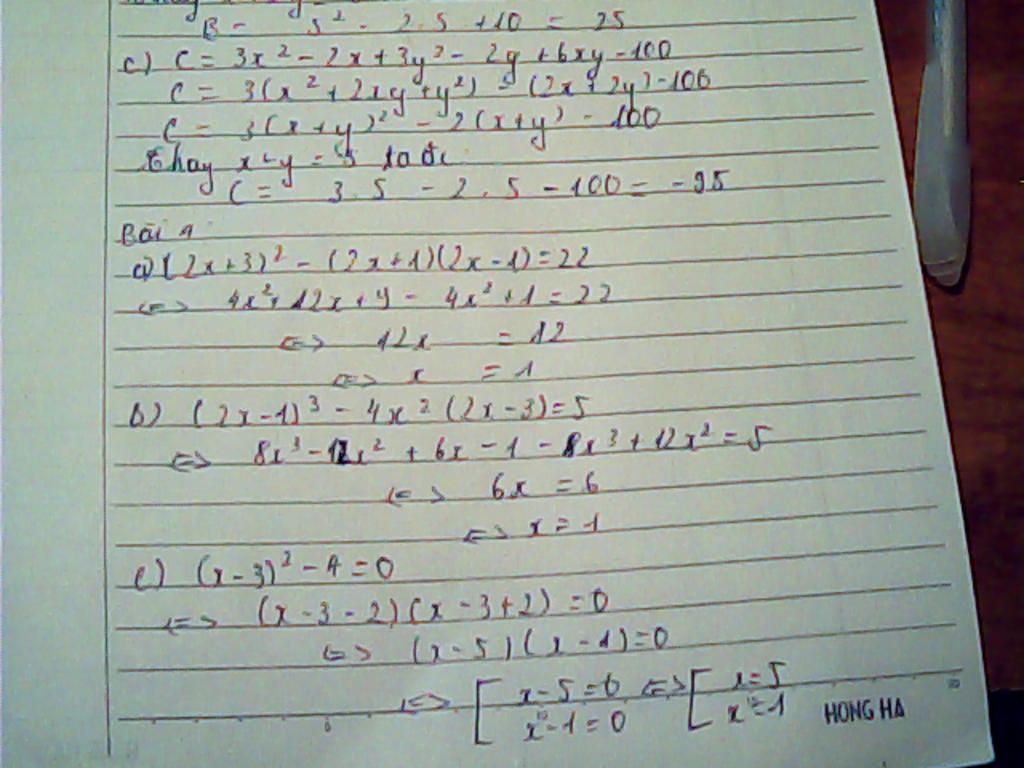 B = 5² - 2.5 + 10 = 25
c) C = 3x² - 2x + 3y² - 2y + 6xy - 100
C = 3(x² + 2xy + y²) - (2x + 2y) - 100
C = 3(x + y)² - 2(x + y) - 100
Thay x + y = 5 ta đc
C = 3.5 - 2.5 - 100 = -95
Bài 4
a) (2x+3)² - (2x+1)(2x-1) = 22
<=> 4x² + 12x + 9 - 4x² + 1 = 22
<=> 12x = 12
<=> x = 1
b) (2x-1)³ - 4x²(2x-3) = 5
<=> 8x³ - 12x² + 6x - 1 - 8x³ + 12x² = 5
<=> 6x = 6
<=> x = 1
c) (x-3)² - 4 = 0
<=> (x-3-2)(x-3+2) = 0
<=> (x-5)(x-1) = 0
<=> [ x-5=0 <=> [ x=5
x-1=0 x=1
HONG HA